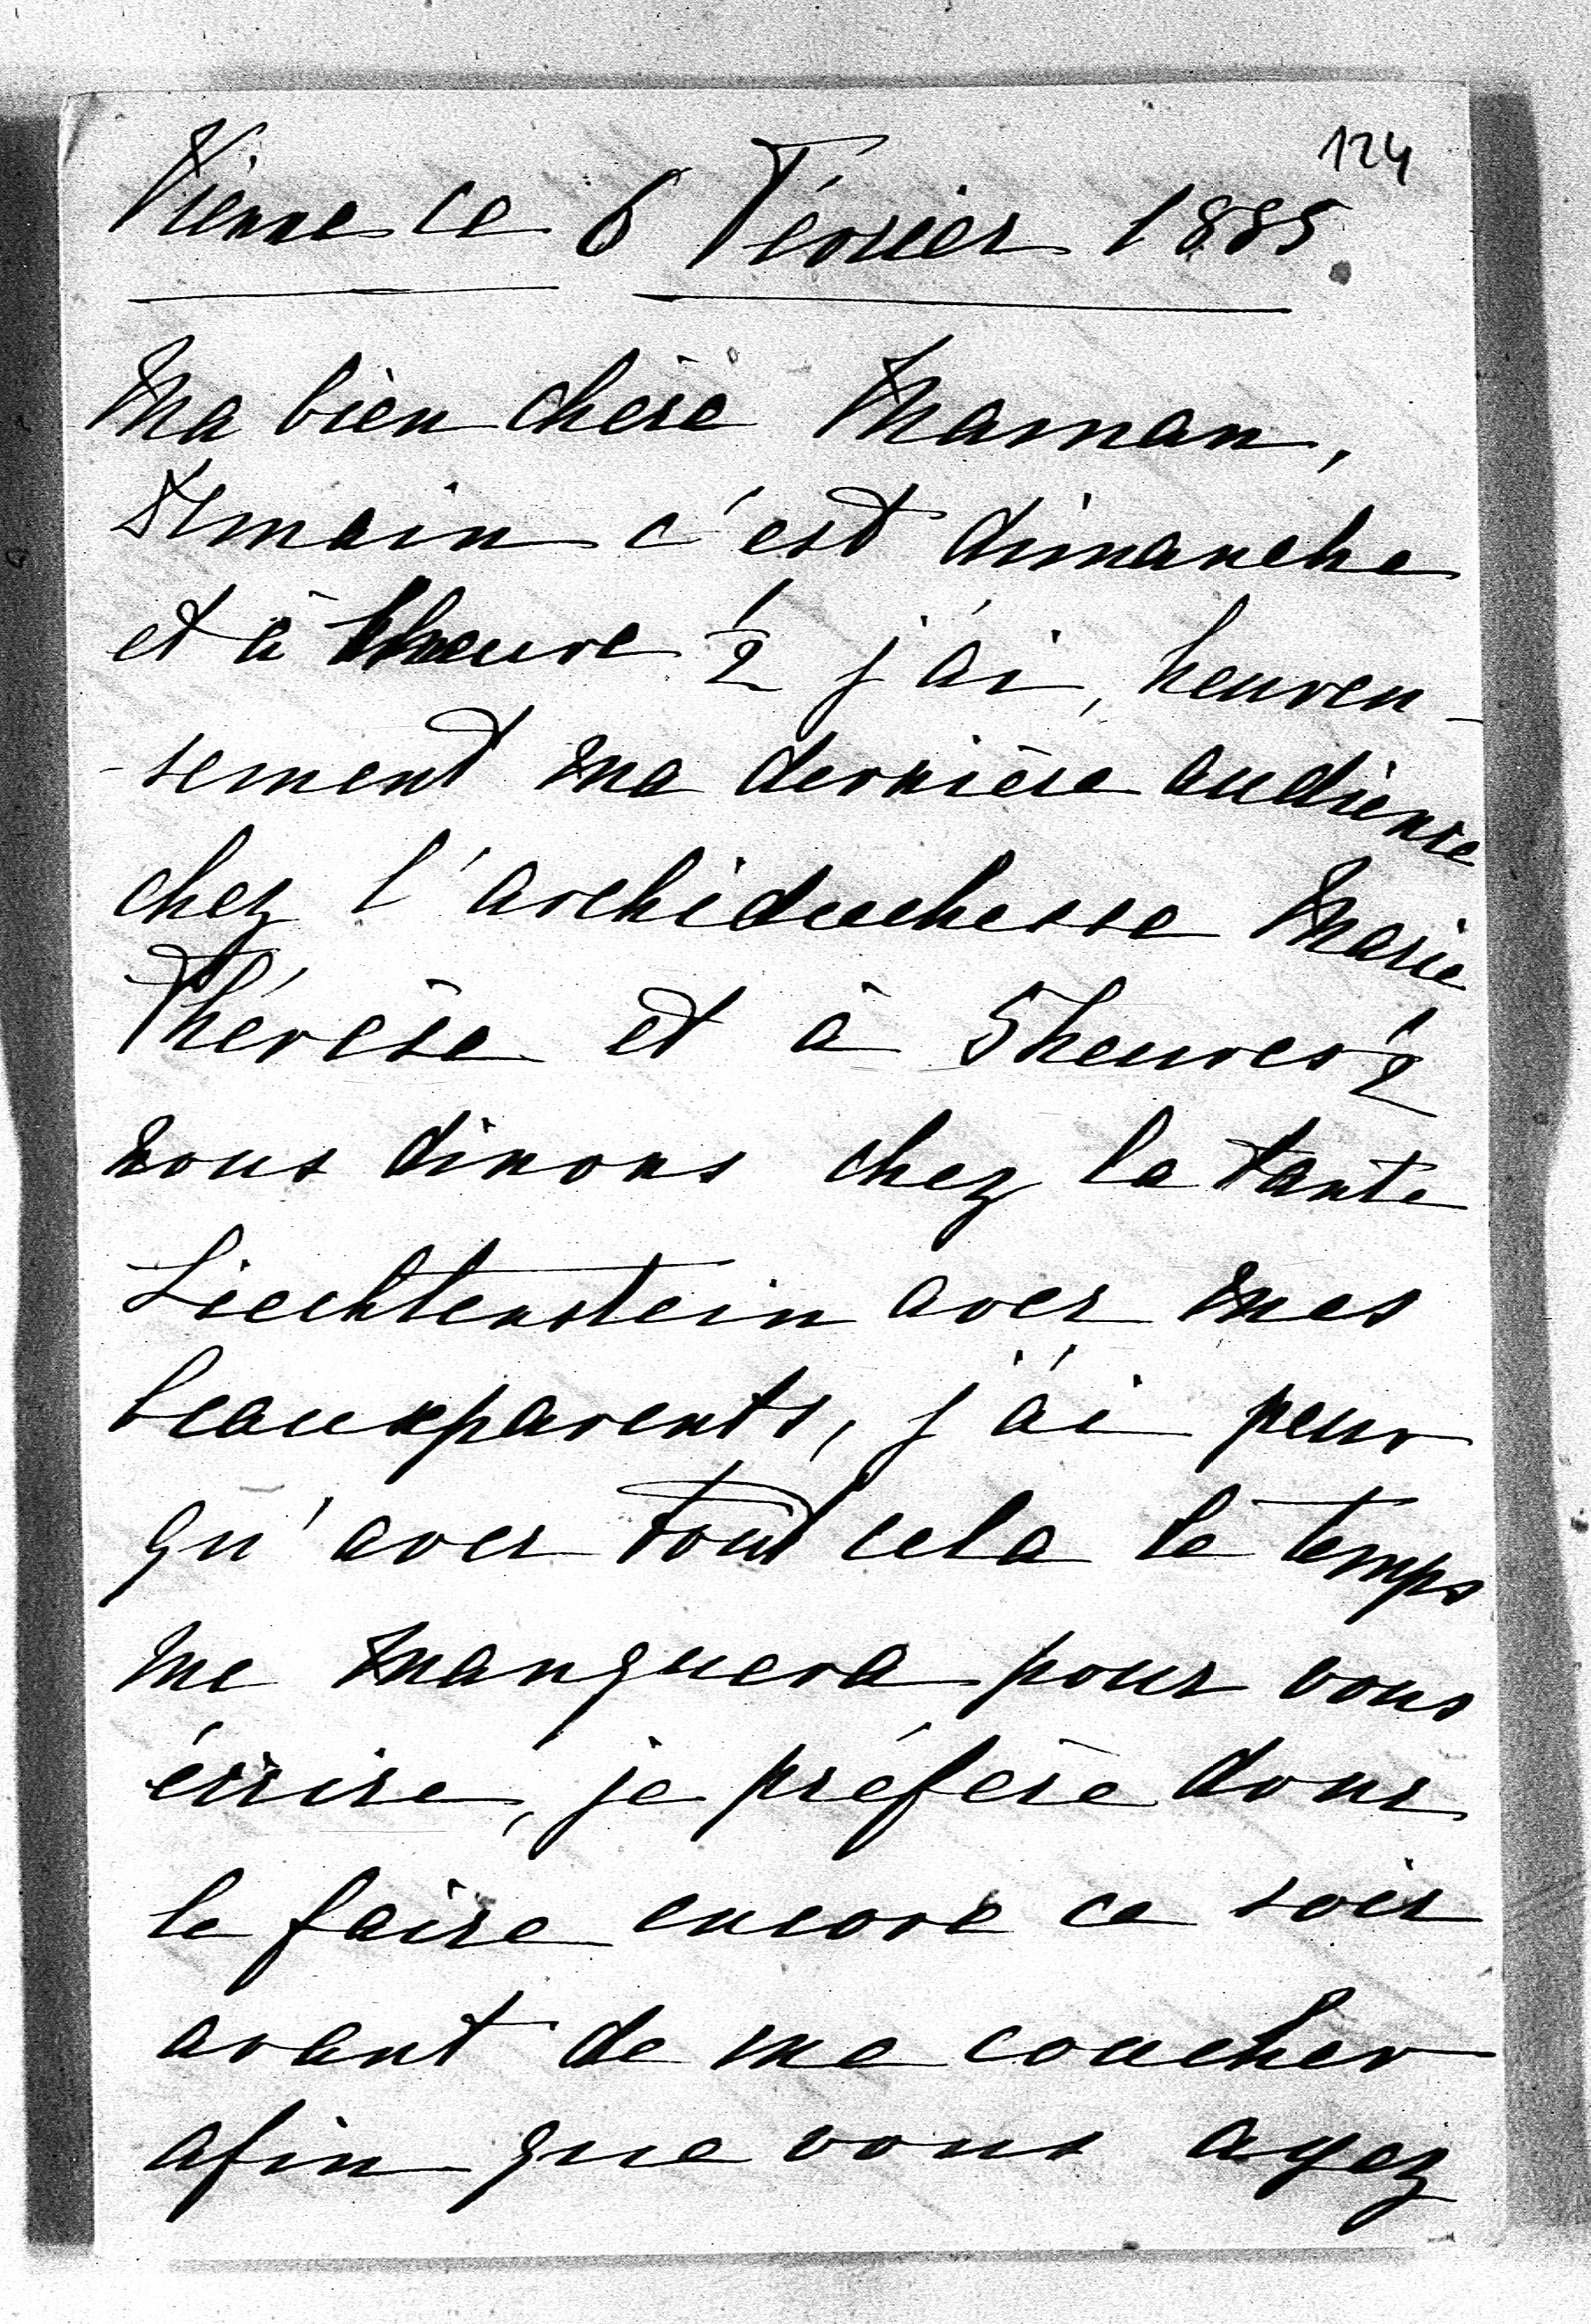 124
Vienne ce 6 Février 1885.
Ma bien chère Maman,
Demain c'est dimanche
et à 1 heure 1/2 j'ai, heureu-
-sement ma dernière audience
chez l'archiduchesse Marie
Thérèse et à 5 heures 1/2
nous dinons chez la tante
Liechtenstein avec mes
beauxparents, j'ai peur
qu'avec tout cela le temps
me manquera pour vous
écrire, je préfère donc
le faire encore ce soir
avant de me coucher
afin que vous ayez